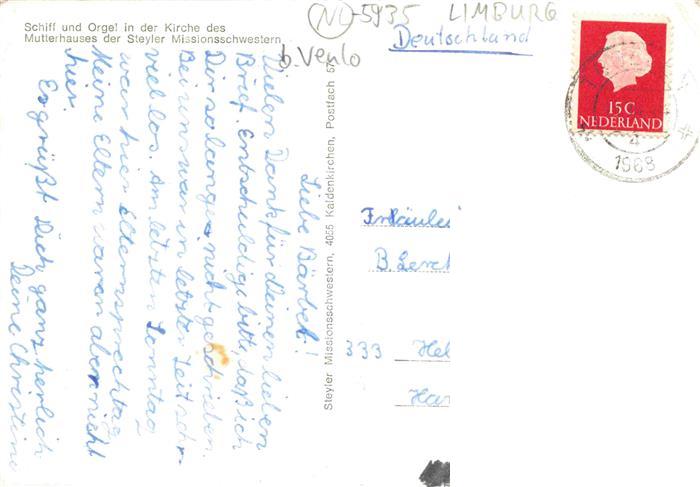 Schiff und Orgel in der Kirche des
Mutterhauses der Steyler Missionsschwestern
NL-5935 LIMBURG
b. Venlo
Deutschland
15C
NEDERLAND
4
1968
Liebe Bärbel!
Vielen Dank für deinen lieben
Brief. Entschuldige bitte, daß ich
Dir so lange nicht geschrieben.
Bei uns war in letzter Zeit sehr
viel los. Am letzten Sonntag
war hier Elternsprechtag
Meine Eltern waren aber nicht
hier.
Es grüßt Dich ganz herlich
Deine Christine
Steyler Missionsschwestern, 4055 Kaldenkirchen, Postfach 57
Fräulei
B. Lerch
333 Hel
Han